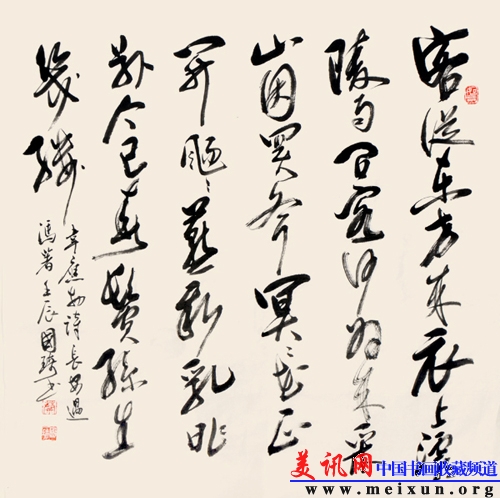 客從东方来衣上灞
陵雨问客何为来采
山因買斧冥〻花正
开飏〻燕新乳昨
别今已春鬓絲生
幾縷
韋應物詩長安遇
馮著壬辰國书
美讯网 中国书画收藏频道
www.meixun.org